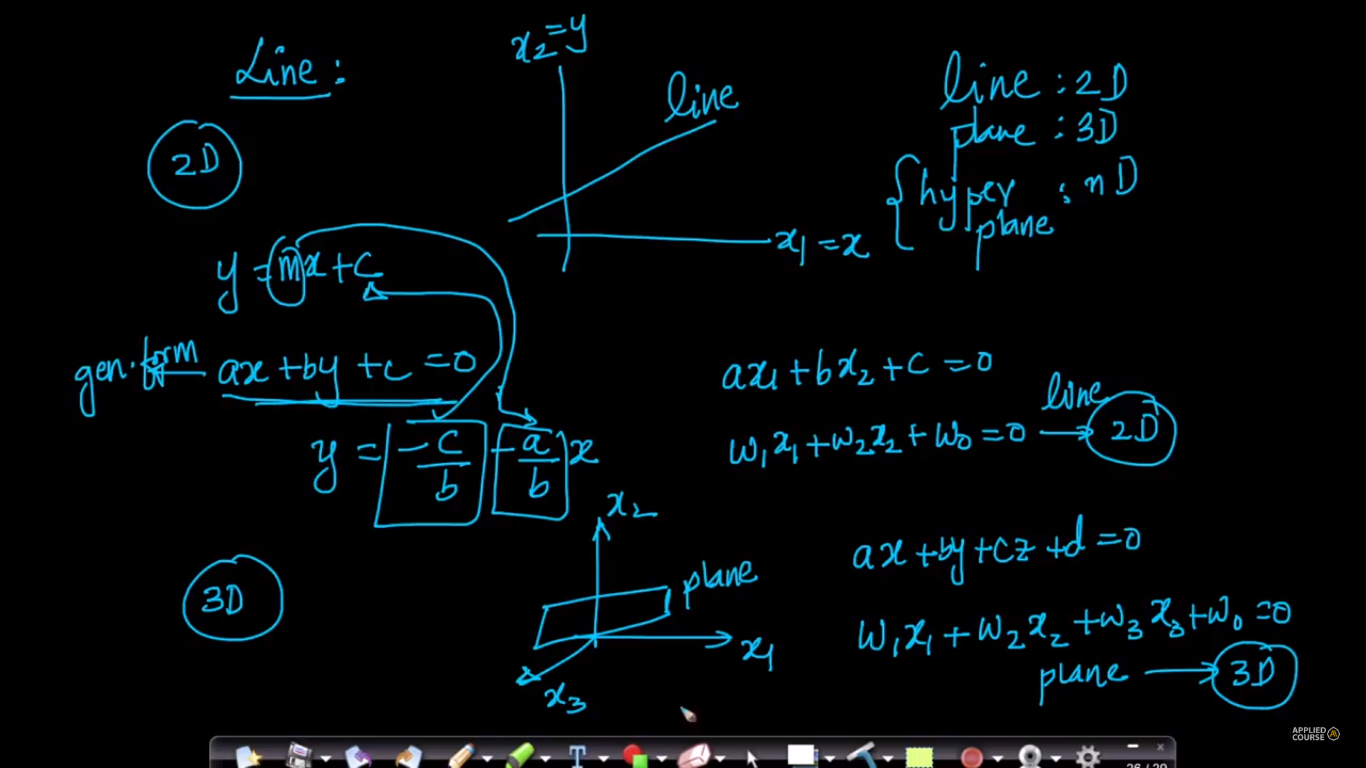 Line:
2D
x₂=y
line
x₁=x
line : 2D
plane : 3D
{ hyper plane : nD
y = mx+c
gen. form ax+by+c=0
y = -c/b -a/b x
ax₁+bx₂+c=0
w₁x₁+w₂x₂+w₀=0 → 2D
line
3D
x₂
plane
x₁
x₃
ax+by+cz+d=0
w₁x₁+w₂x₂+w₃x₃+w₀=0
plane → 3D
APPLIED
COURSE